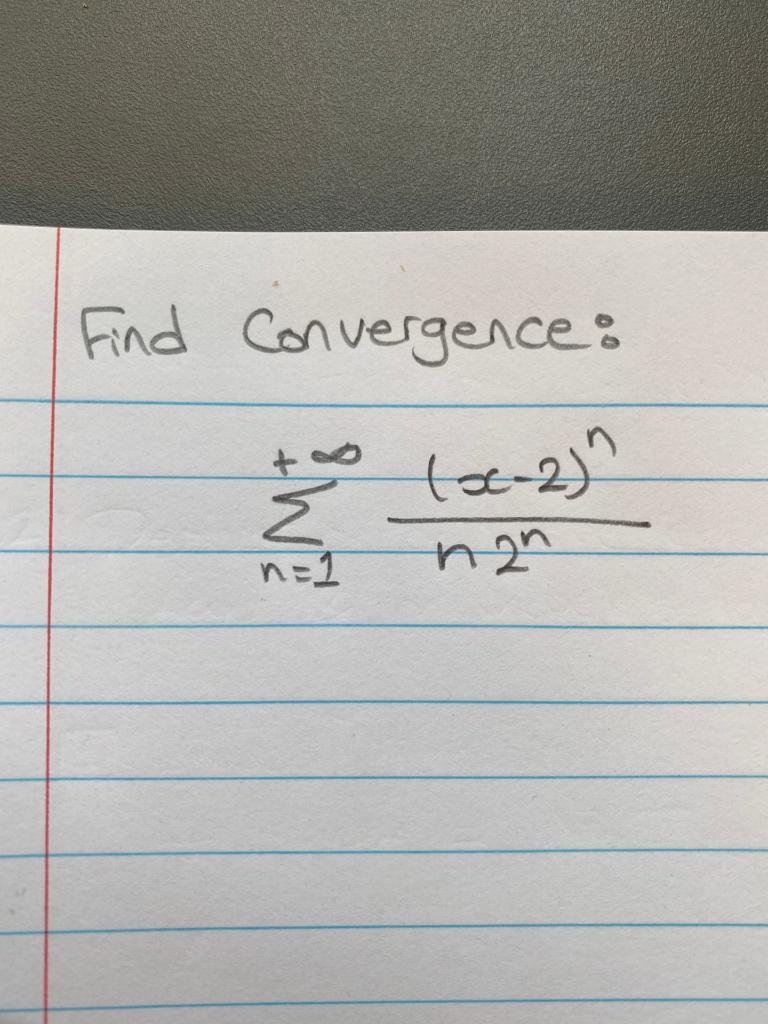 Find Convergence:
+∞
Σ
n=1
(x-2)ⁿ
n2ⁿ